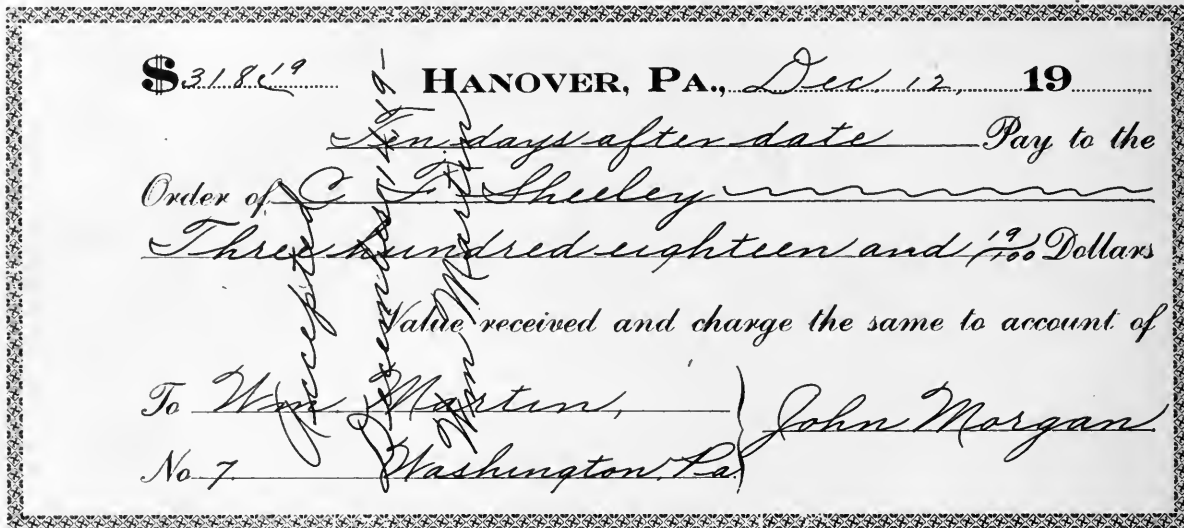 $ 318 19 HANOVER, PA., Dec. 12, 19
Ten days after date Pay to the
Order of C F Sheeley
Three hundred eighteen and 19/100 Dollars
Value received and charge the same to account of
To Wm Martin,
No 7. Washington Pa.
John Morgan
Accepted
December 14 19-
Wm Martin